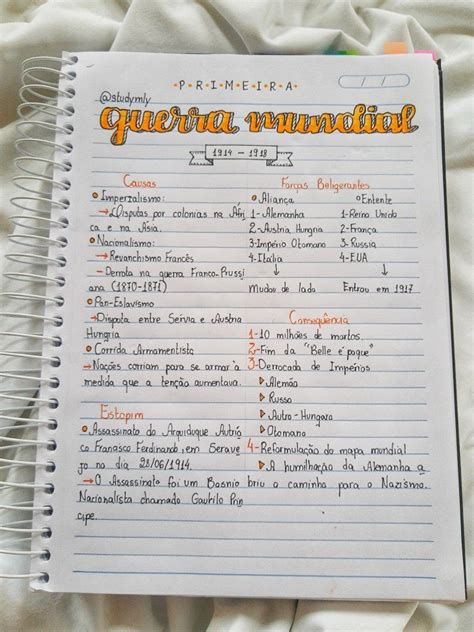 PRIMEIRA
@studymly
guerra mundial
1914 - 1918
Causas
Imperialismo:
→Disputas por colonias na Áfri
ca e na Ásia.
Nacionalismo:
→Revanchismo Francês
- Derrota na guerra Franco-Prussi
ana (1870-1871)
Pan-Eslavismo
→Disputa entre Sérvia e Austria
Hungria
Corrida Armamentista
→Nações corriam para se armar à
medida que a tenção aumentava.
Estopim
Assassinato do Arquiduque Autrís
co Francisco Ferdinando em Serave
jo no dia 28/06/1914.
→O Assassinato foi um Bosnio
Nacionalista chamado Gavrilo Prin
cipe.
Forças Beligerantes
Aliança
1-Alemanha
2-Austria Hungria
3-Império Otomano
4-Itália
↓
Mudou de lado
Entente
1-Reino Unido
2-França
3-Russia
4-EUA
↓
Entrou em 1917
Consequência
1-10 milhões de mortos.
2-Fim da "Belle é poque"
3-Derrocada de Impérios
Alemão
Russo
Autro-Hungaro
Otomano
4-Reformulação do mapa mundial
A humilhação da Alemanha a
briu o caminho para o Nazismo.